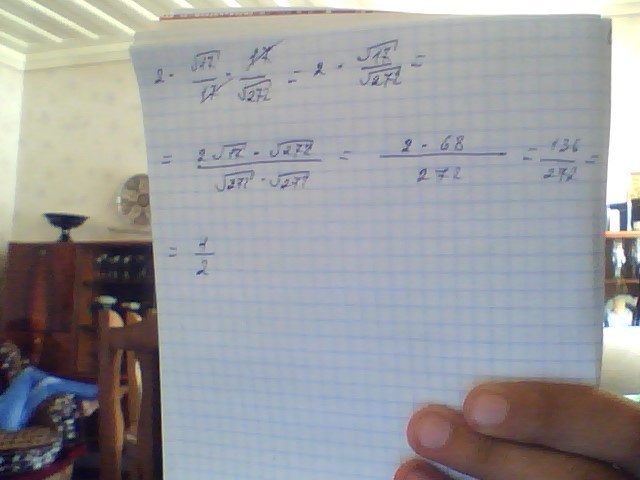 2 · √17/17 · 17/√272 = 2 · √17/√272 =
= 2√17 · √272/√272 · √272 = 2 · 68/272 = 136/272 =
= 1/2